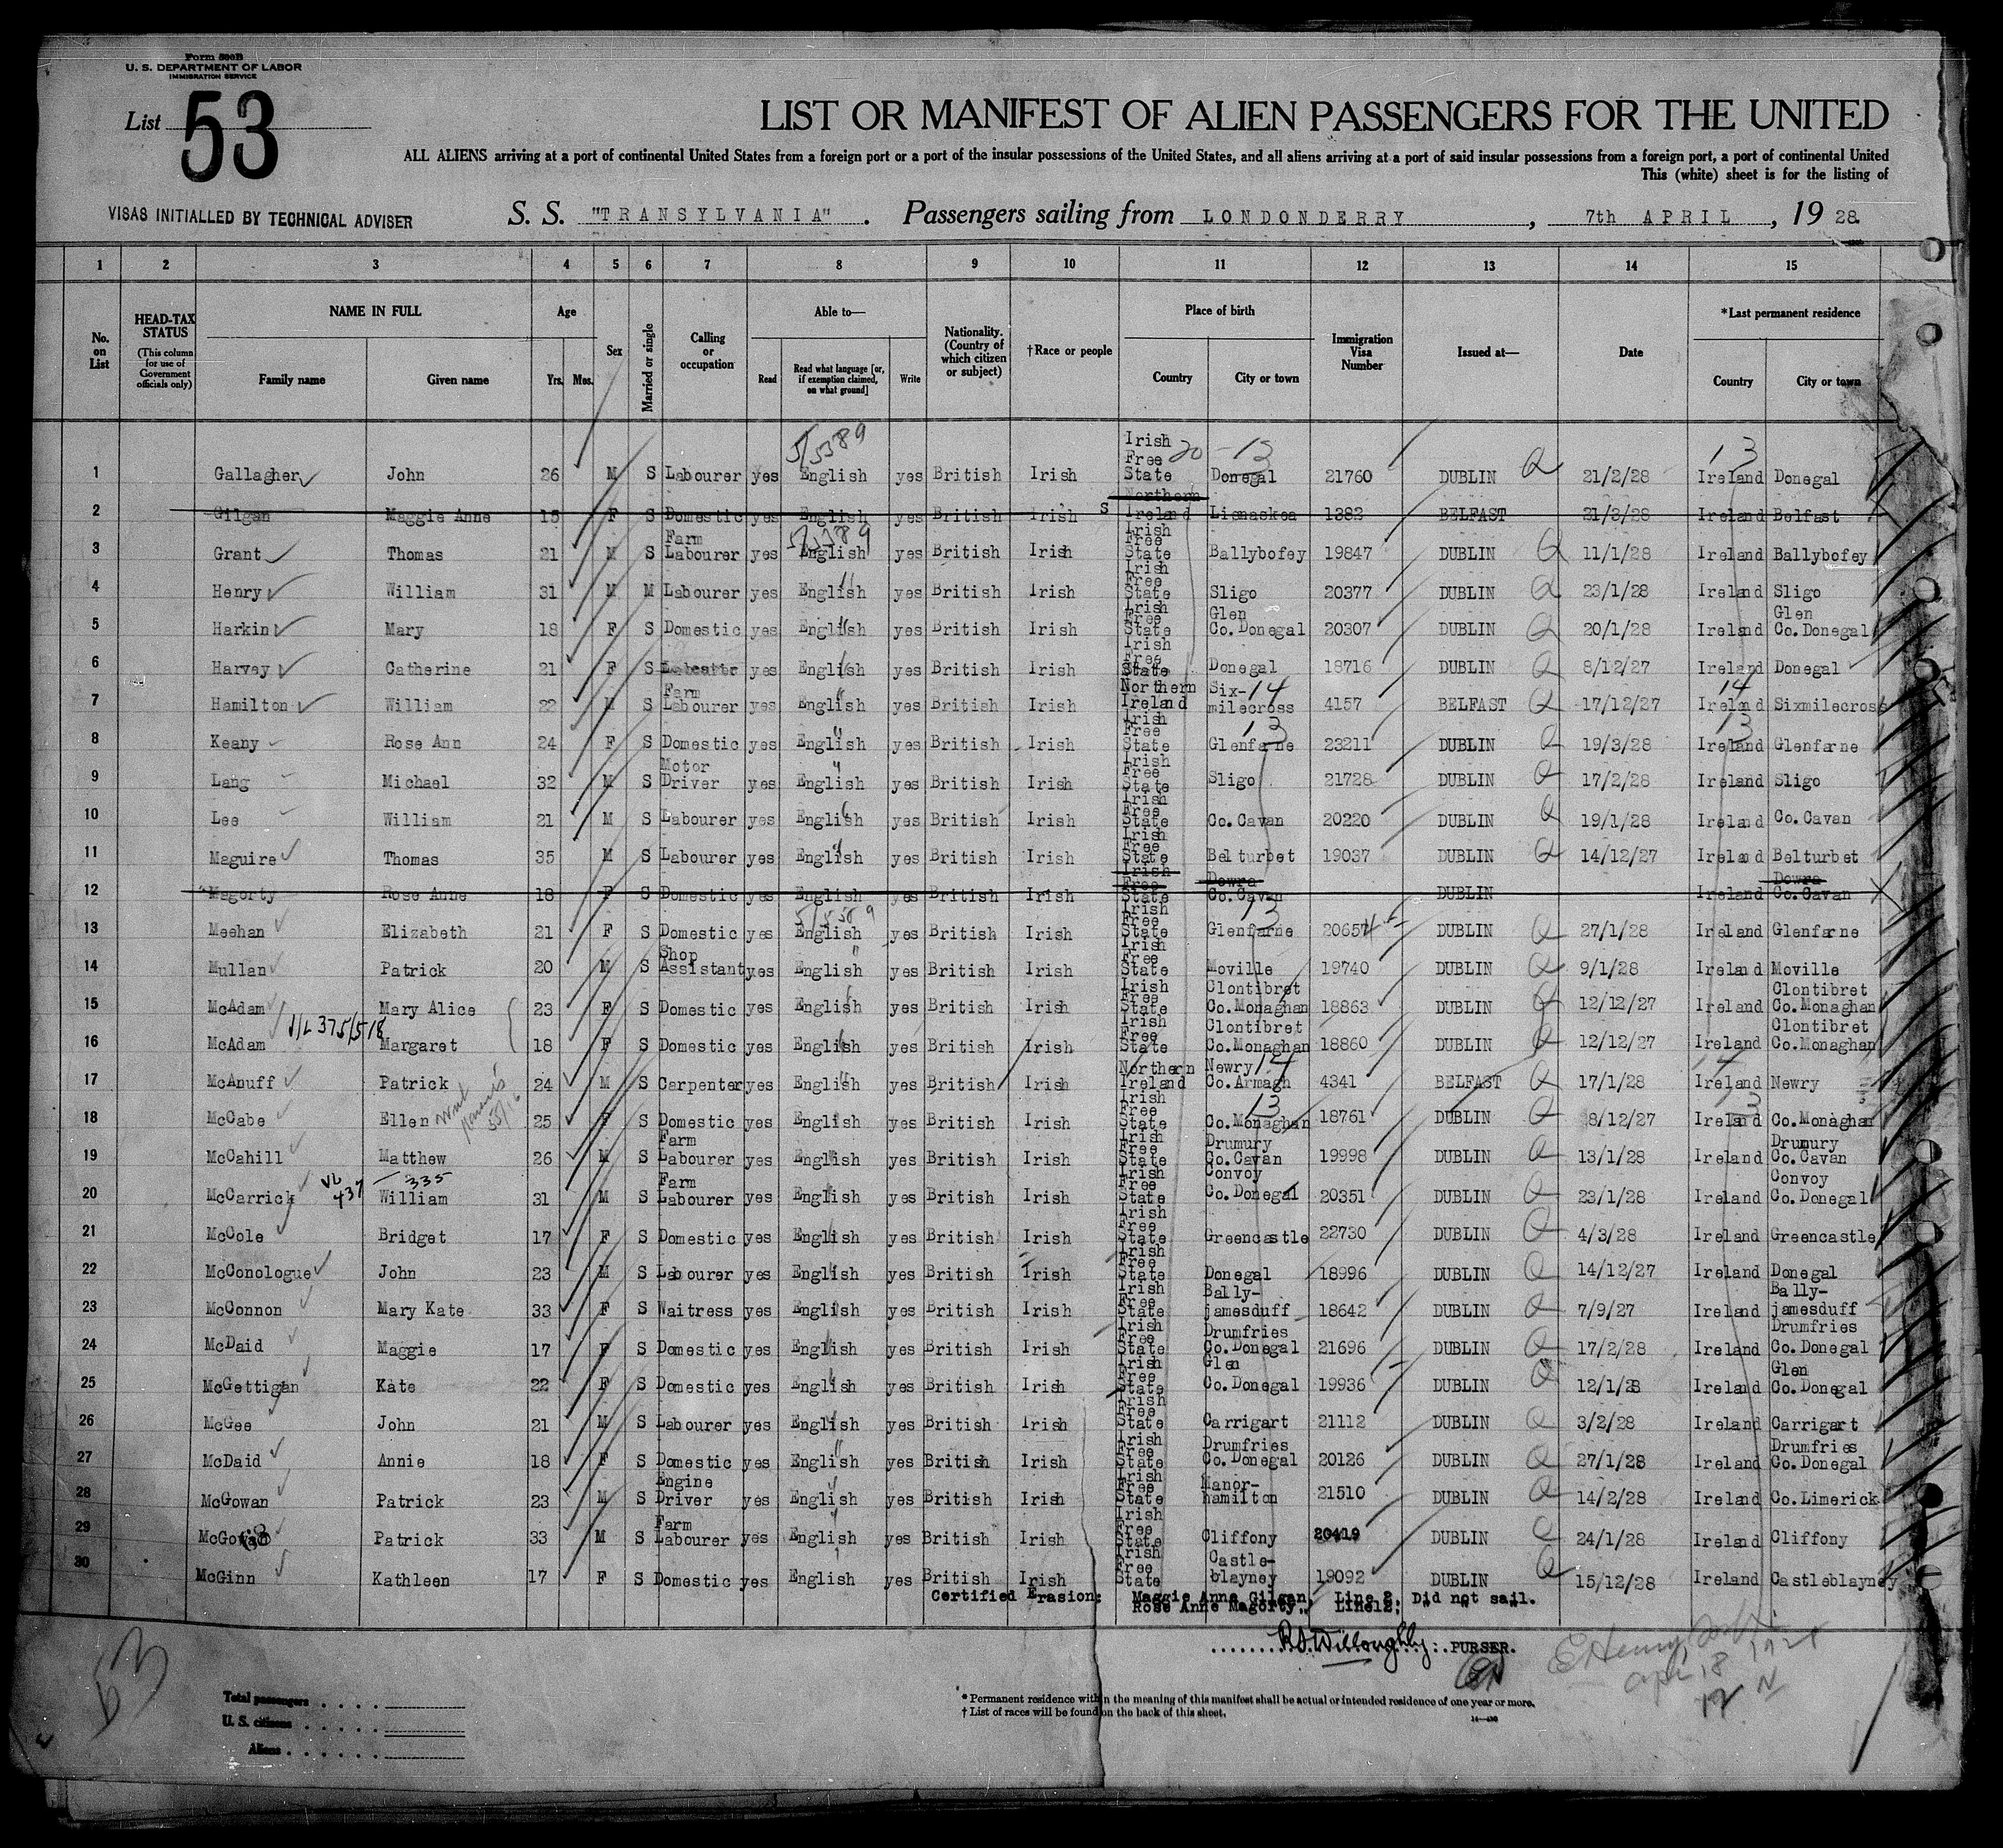 Form 500B
U. S. DEPARTMENT OF LABOR
IMMIGRATION SERVICE
List 53
LIST OR MANIFEST OF ALIEN PASSENGERS FOR THE UNITED
ALL ALIENS arriving at a port of continental United States from a foreign port or a port of the insular possessions of the United States, and all aliens arriving at a port of said insular possessions from a foreign port, a port of continental United
This (white) sheet is for the listing of
VISAS INITIALLED BY TECHNICAL ADVISER
S. S. "TRANSYLVANIA". Passengers sailing from LONDONDERRY, 7th APRIL, 1928
1 2 3 4 5 6 7 8 9 10 11 12 13 14 15
No. on List
HEAD-TAX STATUS (This column for use of Government officials only)
NAME IN FULL Family name Given name
Age Yrs. Mos.
Sex
Married or single
Calling or occupation
Able to— Read Read what language [or, if exemption claimed, on what ground] Write
Nationality. (Country of which citizen or subject)
†Race or people
Place of birth Country City or town
Immigration Visa Number
Issued at—
Date
*Last permanent residence Country City or town
1 Gallagher John 26 M S Labourer yes English yes British Irish Irish Free State Donegal 21760 DUBLIN 21/2/28 Ireland Donegal
2 Gilgan Maggie Anne 15 F S Domestic yes English yes British Irish Northern Ireland Lisnaskea 1382 BELFAST 21/3/28 Ireland Belfast
3 Grant Thomas 21 M S Farm Labourer yes English yes British Irish Irish Free State Ballybofey 19847 DUBLIN 11/1/28 Ireland Ballybofey
4 Henry William 31 M M Labourer yes English yes British Irish Irish Free State Sligo 20377 DUBLIN 23/1/28 Ireland Sligo
5 Harkin Mary 18 F S Domestic yes English yes British Irish Irish Free State Glen Co. Donegal 20307 DUBLIN 20/1/28 Ireland Glen Co. Donegal
6 Harvey Catherine 21 F S yes English yes British Irish Irish Free State Donegal 18716 DUBLIN 8/12/27 Ireland Donegal
7 Hamilton William 22 M S Farm Labourer yes English yes British Irish Northern Ireland Six-milecross 4157 BELFAST 17/12/27 Ireland Sixmilecross
8 Keany Rose Ann 24 F S Domestic yes English yes British Irish Irish Free State Glenfarne 23211 DUBLIN 19/3/28 Ireland Glenfarne
9 Lang Michael 32 M S Motor Driver yes English yes British Irish Irish Free State Sligo 21728 DUBLIN 17/2/28 Ireland Sligo
10 Lee William 21 M S Labourer yes English yes British Irish Irish Free State Co. Cavan 20220 DUBLIN 19/1/28 Ireland Co. Cavan
11 Maguire Thomas 35 M S Labourer yes English yes British Irish Irish Free State Belturbet 19037 DUBLIN 14/12/27 Ireland Belturbet
12 Magorty Rose Anne 18 F S Domestic yes English yes British Irish Irish Free State Dowra Co. Cavan DUBLIN Ireland Dowra Co. Cavan
13 Meehan Elizabeth 21 F S Domestic yes English yes British Irish Irish Free State Glenfarne 20657 DUBLIN 27/1/28 Ireland Glenfarne
14 Mullan Patrick 20 M S Shop Assistant yes English yes British Irish Irish Free State Moville 19740 DUBLIN 9/1/28 Ireland Moville
15 McAdam Mary Alice 23 F S Domestic yes English yes British Irish Irish Free State Clontibret Co. Monaghan 18863 DUBLIN 12/12/27 Ireland Clontibret Co. Monaghan
16 McAdam Margaret 18 F S Domestic yes English yes British Irish Irish Free State Clontibret Co. Monaghan 18860 DUBLIN 12/12/27 Ireland Clontibret Co. Monaghan
17 McAnuff Patrick 24 M S Carpenter yes English yes British Irish Northern Ireland Newry Co. Armagh 4341 BELFAST 17/1/28 Ireland Newry
18 McCabe Ellen 25 F S Domestic yes English yes British Irish Irish Free State Co. Monaghan 18761 DUBLIN 8/12/27 Ireland Co. Monaghan
19 McCahill Matthew 26 M S Farm Labourer yes English yes British Irish Irish Free State Drumury Co. Cavan 19998 DUBLIN 13/1/28 Ireland Drumury Co. Cavan
20 McCarrick William 31 M S Farm Labourer yes English yes British Irish Irish Free State Convoy Co. Donegal 20351 DUBLIN 23/1/28 Ireland Convoy Co. Donegal
21 McCole Bridget 17 F S Domestic yes English yes British Irish Irish Free State Greencastle 22730 DUBLIN 4/3/28 Ireland Greencastle
22 McConologue John 23 M S Labourer yes English yes British Irish Irish Free State Donegal 18996 DUBLIN 14/12/27 Ireland Donegal
23 McConnon Mary Kate 33 F S Waitress yes English yes British Irish Irish Free State Bally-jamesduff 18642 DUBLIN 7/9/27 Ireland Bally-jamesduff
24 McDaid Maggie 17 F S Domestic yes English yes British Irish Irish Free State Drumfries Co. Donegal 21696 DUBLIN 17/2/28 Ireland Drumfries Co. Donegal
25 McGettigan Kate 22 F S Domestic yes English yes British Irish Irish Free State Glen Co. Donegal 19936 DUBLIN 12/1/28 Ireland Glen Co. Donegal
26 McGee John 21 M S Labourer yes English yes British Irish Irish Free State Carrigart 21112 DUBLIN 3/2/28 Ireland Carrigart
27 McDaid Annie 18 F S Domestic yes English yes British Irish Irish Free State Drumfries Co. Donegal 20126 DUBLIN 27/1/28 Ireland Drumfries Co. Donegal
28 McGowan Patrick 23 M S Engine Driver yes English yes British Irish Irish Free State Manor-hamilton 21510 DUBLIN 14/2/28 Ireland Co. Limerick
29 McGowan Patrick 33 M S Farm Labourer yes English yes British Irish Irish Free State Cliffony 20419 DUBLIN 24/1/28 Ireland Cliffony
30 McGinn Kathleen 17 F S Domestic yes English yes British Irish Irish Free State Castle-blayney 19092 DUBLIN 15/12/28 Ireland Castleblayney
Certified Erasion: Maggie Anne Gilgan, Line 2. Did not sail.
Rose Anne Magorty, Line 12. " " "
R.S. Willoughby PURSER.
53
Total passengers
U. S. citizens
Aliens
* Permanent residence within the meaning of this manifest shall be actual or intended residence of one year or more.
† List of races will be found on the back of this sheet.